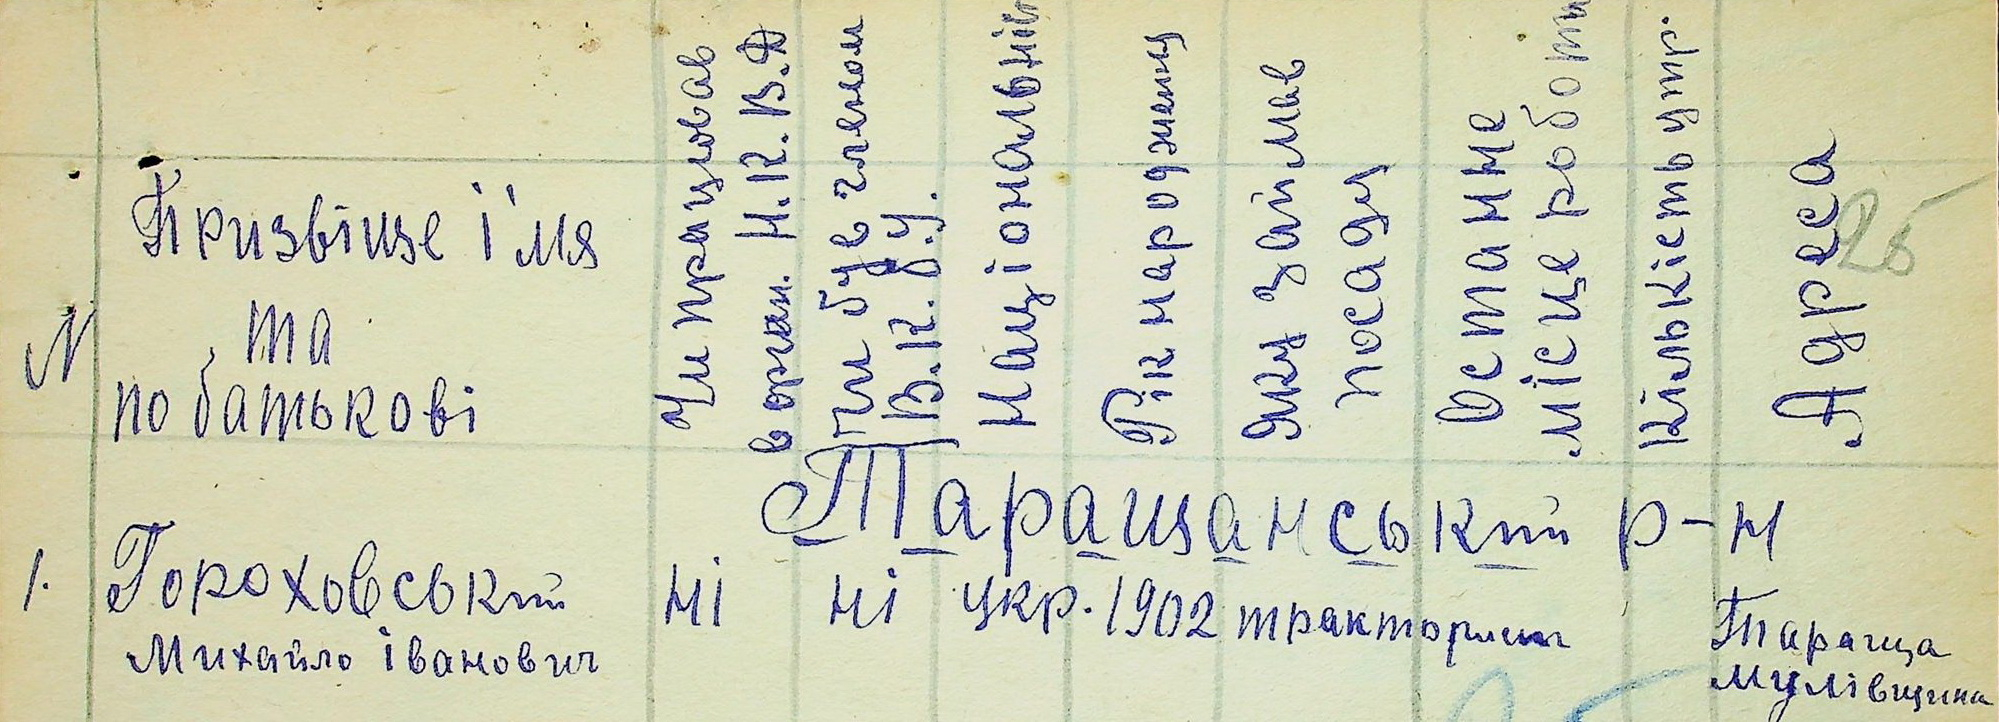 N
Призвіще і'мя
та
по батькові
Чи працював
в орган. Н.К.В.Д
чи був членом
В.К.П.У.
Національній
Рік народженну
Яку займав
посаду
Останне
місце роботи
Кількість утр.
Адреса
25
Таращанський р-н
1. Гороховський ні ні укр. 1902 тракторист Тараща
Михайло Іванович Мулівщина